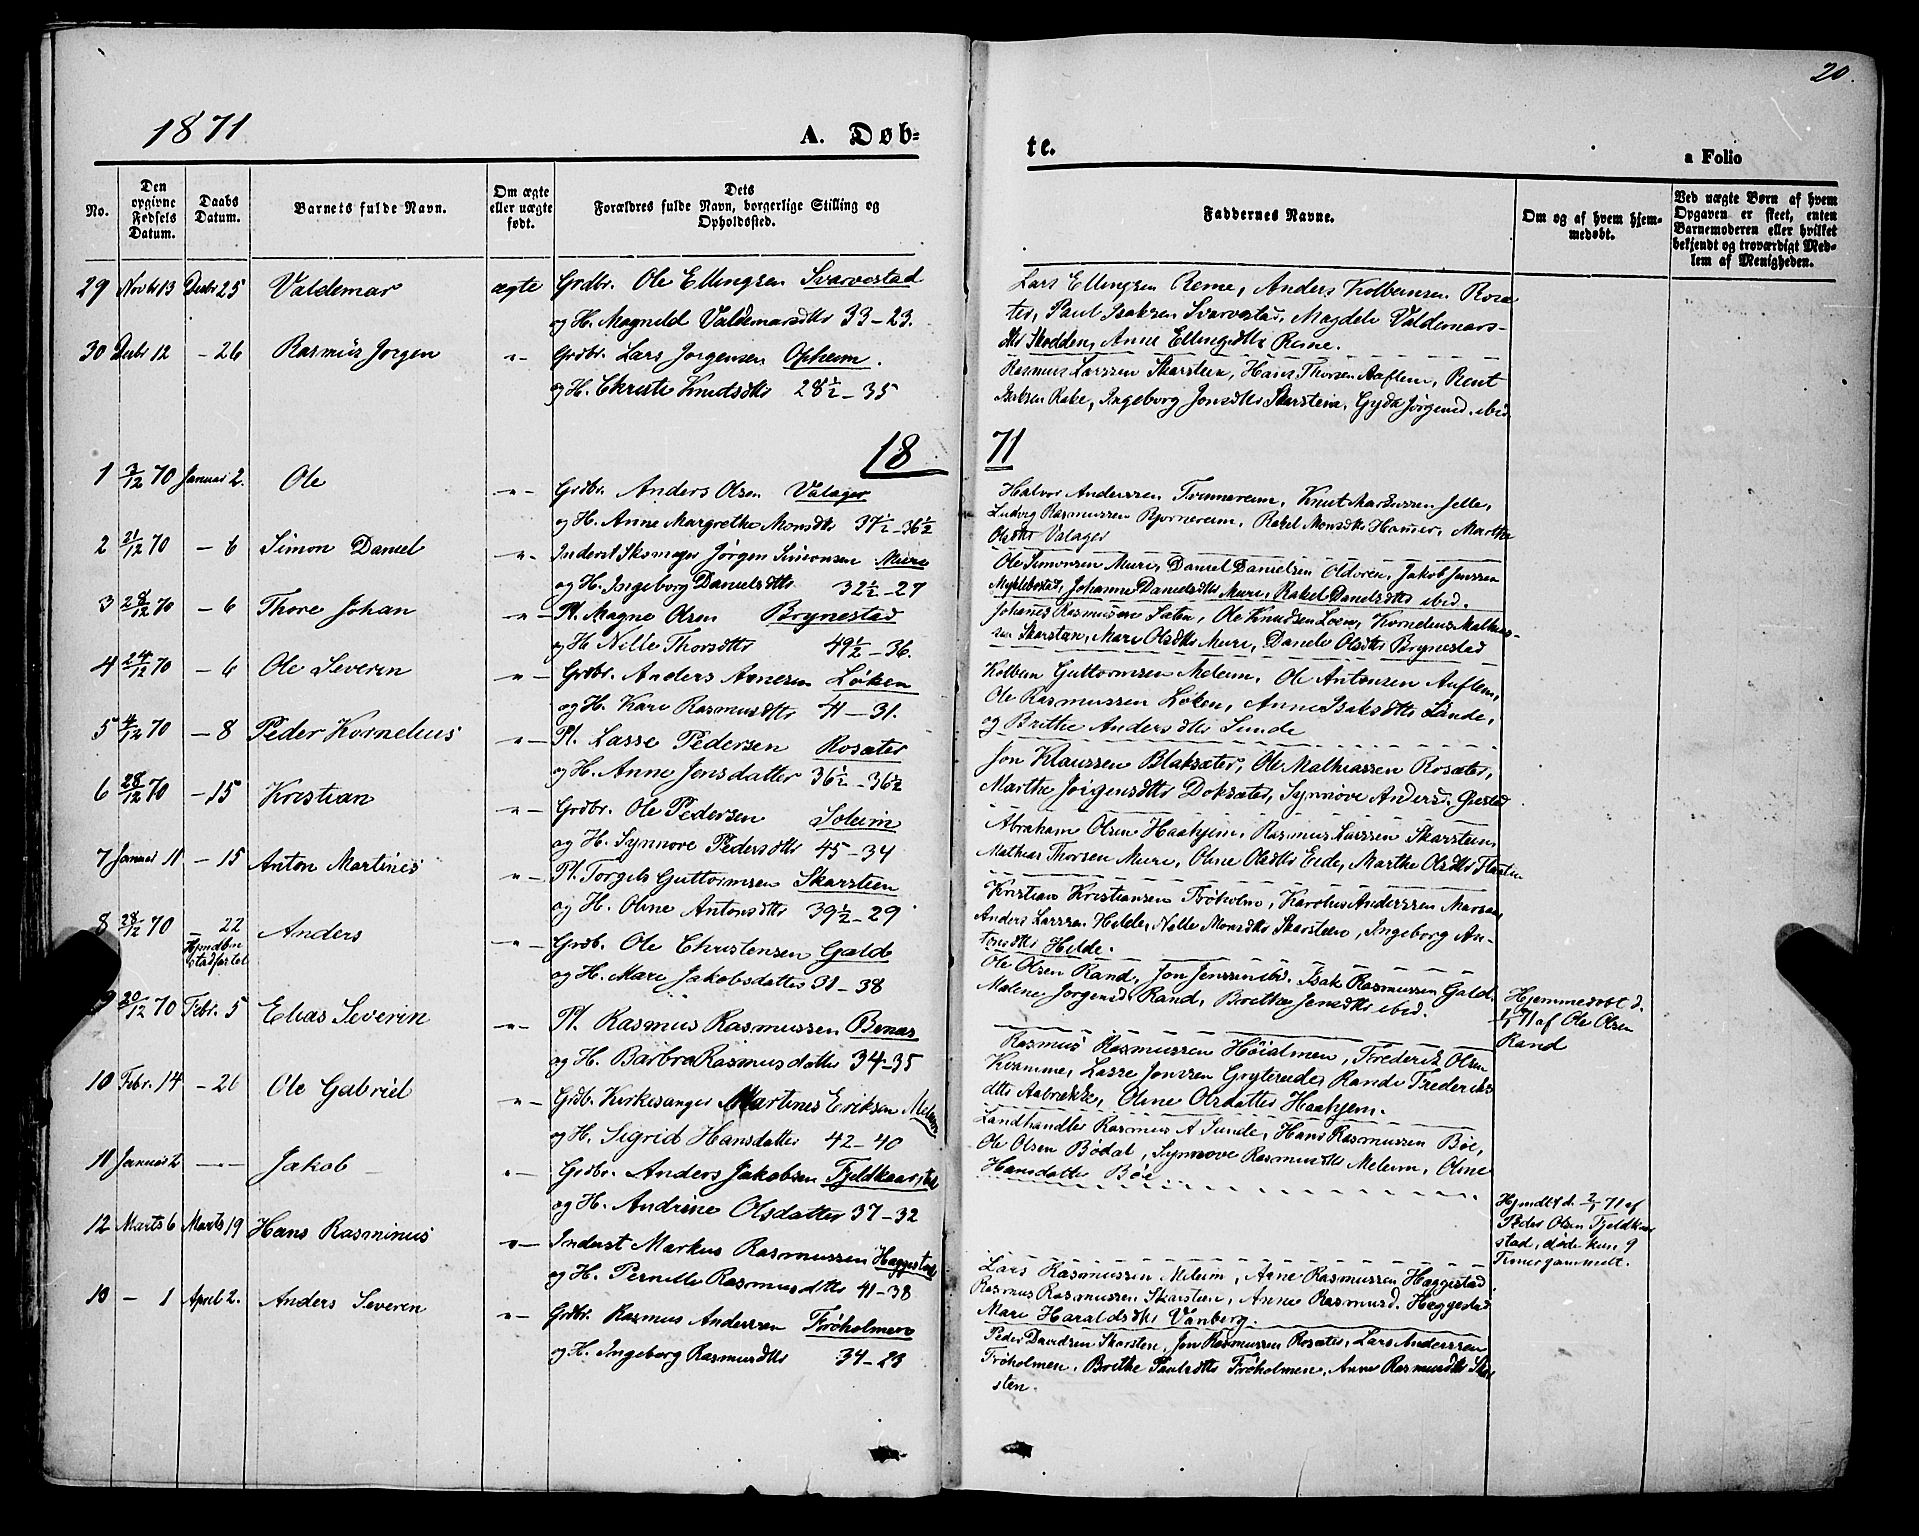 20.
1871
A. Døb-
te.
a Folio
No.
Den opgivne Fødsels Datum.
Daabs Datum.
Barnets fulde Navn.
Om ægte eller uægte født.
Dets Forældres fulde Navn, borgerlige Stilling og Opholdssted.
Faddernes Navne.
Om og af hvem hjemmedøbt.
Ved uægte Børn af hvem Opgaven er skeet, enten Barnemoderen eller hvilket bekjendt og troværdigt Medlem af Menigheden.
29 Novbr 13 Decbr 25 Valdemar ægte Grdbr. Ole Ellingsen Svarvestad
og H. Magnild Valdemarsdtr 33-23.
Lars Ellingsen Reme, Anders Kolbeinsen Rosæ
ter, Paul Isaksen Svarvestad, Magdeli Valdemars-
dtr Skodden, Anne Ellingsdtr Reme.
30 Decbr 12 - 26 Rasmus Jørgen -"- Grdbr. Lars Jørgensen Opheim.
og H. Christie Knudsdtr 28½-35
Rasmus Larssen Skarstein, Hans Thorsen Aaflem, Bent
Jakobsen Rake, Ingeborg Jonsdtr Skarstein, Gyda Jørgensd. ibid
18 71
1 3/12 70 Januar 2. Ole -"- Grdbr. Anders Olsen Valager
og H. Anne Margrethe Monsdtr 37½-36½
Halvor Anderssen Tvinnereim, Knut Markussen Jelle,
Ludvig Rasmussen Bjørnereim, Rakel Monsdtr Hamer, Marthe
Olsdtr Valager
2 21/12 70 - 6 Simon Daniel -"- Inderst Skomager Jørgen Simonsen Muri
og H. Ingeborg Danielsdtr 32½-27
Ole Simonsen Muri, Daniel Danielsen Oldøren, Jakob Jenssen
Myklebostad, Johanne Danielsdtr Muri, Rakel Danielsdtr ibid.
3 28/12 70 - 6 Thore Johan -"- Pl. Magne Olsen Brynestad
og H. Nille Thorsdtr 49½-36.
Johannes Rasmussen Sæten, Ole Knudsen Loen, Kornelius Mathias-
sen Skarsten, Mari Olsdtr Muri, Daniele Olsdtr Brynestad
4 24/12 70 - 6 Ole Severin -"- Grdbr. Anders Arnesen Løken
og H. Kari Rasmusdtr 41-31.
Kolbein Guttormsen Meleim, Ole Antonsen Auflem,
Ole Rasmussen Løken, Anne Isaksdtr Sande,
og Brithe Andersdtr Sunde
5 4/12 70 - 8 Peder Kornelius -"- Pl. Lasse Pedersen Rosæter
og H. Anne Jonsdatter 36½-36½
Jon Klaussen Blaksæter, Ole Mathiassen Rosæter,
Marthe Jørgensdtr Doksæter, Synnøve Andersd. Gjestad
6 28/12 70 - 15 Kristian -"- Grdbr. Ole Pedersen Soleim
og H. Synnøve Pedersdtr 45-34
Abraham Olsen Haahjem, Rasmus Larssen Skarstein,
Mathias Thorsen Muri, Oline Olsdtr Eide, Marthe Olsdtr Flaaten
7 Januar 11 - 15 Anton Martines -"- Pl. Torgels Guttormsen Skarstein
og H. Oline Antonsdtr 39½-29
Kristian Kristiansen Frøholm, Karolus Anderssen Marsaa
Anders Larssen Hilde, Nille Monsdtr Skarstein, Ingeborg An-
tonsdtr Hilde.
8 28/12 70 - 22 Anders -"- Grdb. Ole Christensen Gald
Hjmdbn stadfæstet
og H. Mari Jakobsdatter 31-38
Ole Olsen Rand, Jon Jenssen ibid. Isak Rasmussen Gald,
Malene Jørgensd. Rand, Brithe Jensdtr ibid.
Hjemmedøbt d.
1/1 71 af Ole Olsen
Rand
9 20/12 70 Febr. 5 Elias Severin -"- Pl. Rasmus Rasmussen Benas
og H. Barbra Rasmusdatter 34-35
Rasmus Rasmussen Høialmen, Frederik Olsen
Kvamme, Lasse Jonssen Grytereide, Randi Frederiks
dtr Aabrække, Oline Olsdatter Haahjem.
10 Febr. 14 - 26 Ole Gabriel -"- Grdb. Kirkesanger Martines Eriksen Meleim
og H. Sigrid Hansdatter 42-40
Landhandler Rasmus A Sunde, Hans Rasmussen Bøe,
Ole Olsen Bødal, Synnøve Rasmusdtr Meleim, Oline
Hansdatter Bøe
11 Januar 2 -"- Jakob - -"- Grdbr. Anders Jakobsen Fjeldkaarstad
og H. Andrine Olsdatter 37-32
Hjmdbt d. 2/1 71 af
Peder Olsen Fjeldkaar
stad, døde kun 9
Timer gammelt.
12 Marts 6 Marts 19 Hans Rasminus -"- Inderst Markus Rasmussen Heggestad
og H. Pernille Rasmusdtr 41-38
Lars Rasmussen Meleim, Arne Rasmussen Heggestad
Rasmus Rasmussen Skarstein, Anne Rasmusd. Heggestad
Mari Haraldsdtr Vanberg.
13 - 1 April 2. Anders Severin -"- Grdbr. Rasmus Anderssen Frøholmen
og H. Ingeborg Rasmusdtr 34-23
Peder Davidsen Skarsten, Jon Rasmussen Rosæter, Lars Anderssen
Frøholmen, Brithe Paulsdtr Frøholmen, Anne Rasmusdtr Skar
sten.